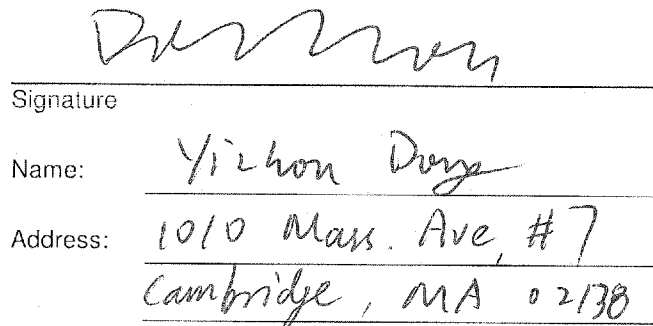 Signature
Name: Yizhou Dong
Address: 1010 Mass. Ave, #7
Cambridge, MA 02138